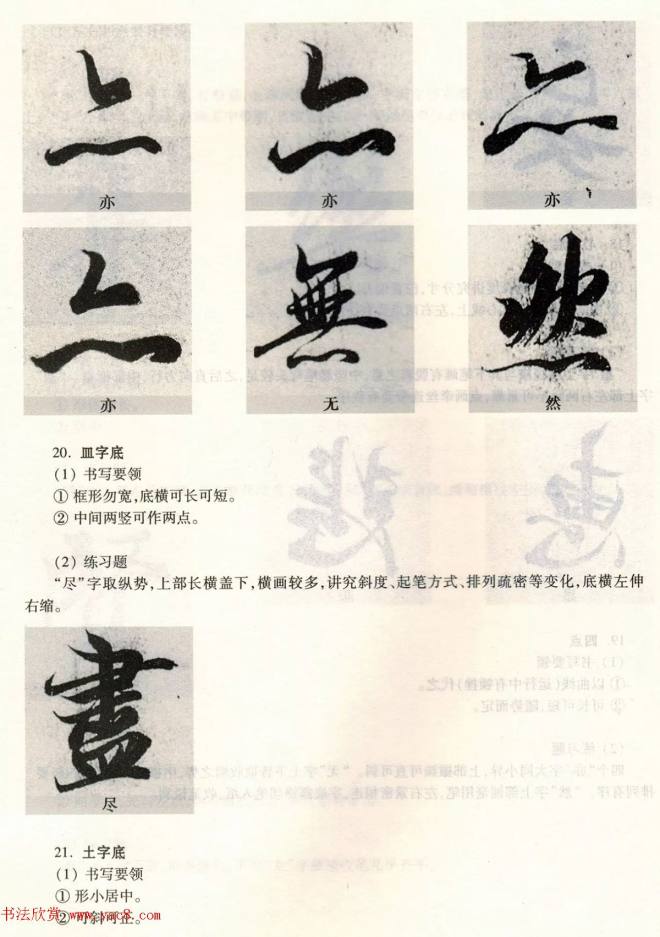 亦 亦 亦
亦 无 然
20. 皿字底
(1) 书写要领
① 框形勿宽，底横可长可短。
② 中间两竖可作两点。
(2) 练习题
“尽”字取纵势，上部长横盖下，横画较多，讲究斜度、起笔方式、排列疏密等变化，底横左伸
右缩。
盡
尽
21. 土字底
(1) 书写要领
① 形小居中。
② 可斜可正。
书法欣赏 www.yac8.com